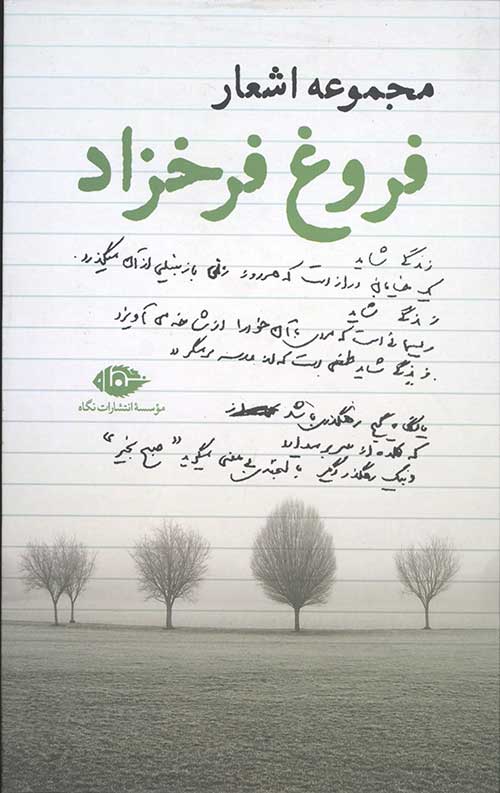 مجموعه اشعار
فروغ فرخزاد
زندگی شاید
یک خیابان درازست که هر روز زنی با زنبیلی از آن میگذرد.
زندگی شاید
ریسمانی است که مردی با آن خود را از شاخه می آویزد
زندگی شاید طفلی است که از مدرسه برمیگردد
مؤسسهٔ انتشارات نگاه
یا نگاه گیج رهگذری باشد
که کلاه از سر بر میدارد
و بیک رهگذر دیگر با لبخندی بی معنی میگوید "صبح بخیر"